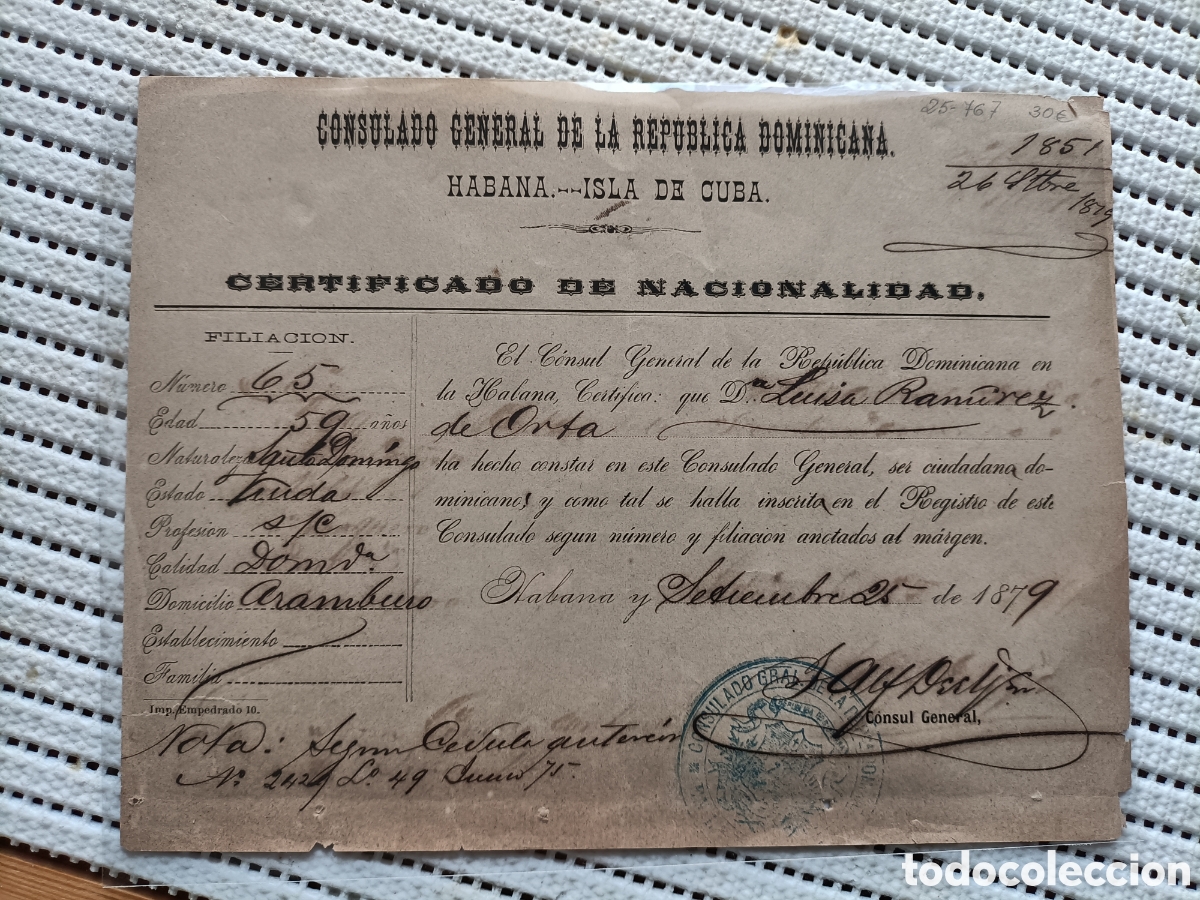 25-767 30€
CONSULADO GENERAL DE LA REPUBLICA DOMINICANA.
1851
HABANA.--ISLA DE CUBA.
26 Stbre 1879
CERTIFICADO DE NACIONALIDAD.
FILIACION.
Número 65
Edad 59 años
Naturaleza Santo Domingo
Estado Viuda
Profesion s/c
Calidad Domda.
Domicilio Aramburo
Establecimiento
Familia
Imp. Empedrado 10.
El Cónsul General de la República Dominicana en
la Habana, Certifica: que Da. Luisa Ramirez
de Orta
ha hecho constar en este Consulado General, ser ciudadana do-
minicana, y como tal se halla inscrita en el Registro de este
Consulado segun número y filiacion anotados al márgen.
Habana y Setiembre 25 de 1879
Cónsul General,
CONSULADO GRAL DE LA
Nota: Segun Cedula anterior
No. 2424 Lo. 49 Junio 75.
todocoleccion